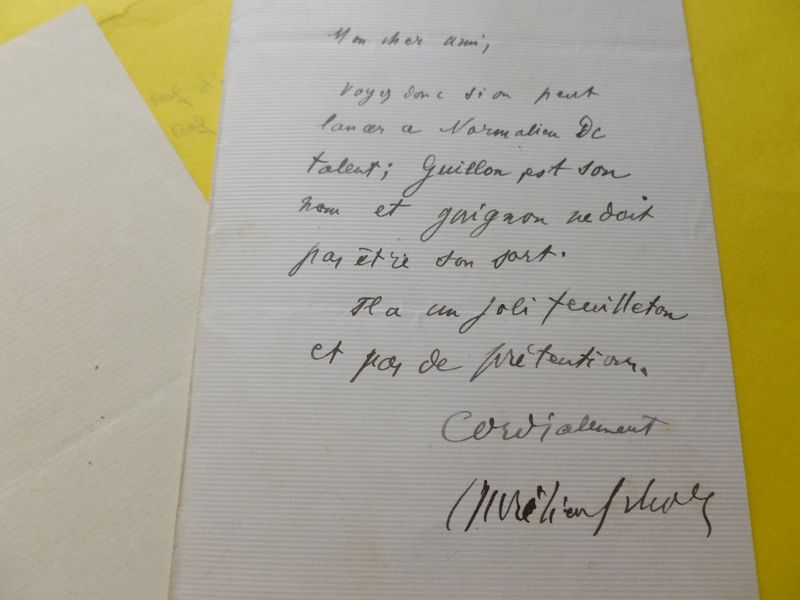 Mon cher ami,
Voyez donc si on peut
lancer ce Normalien De
talent; Guillon est son
nom et guignon ne doit
pas être son sort.
Il a un joli feuilleton
et pas de prétentions.
Cordialement
Aurélien Scholl